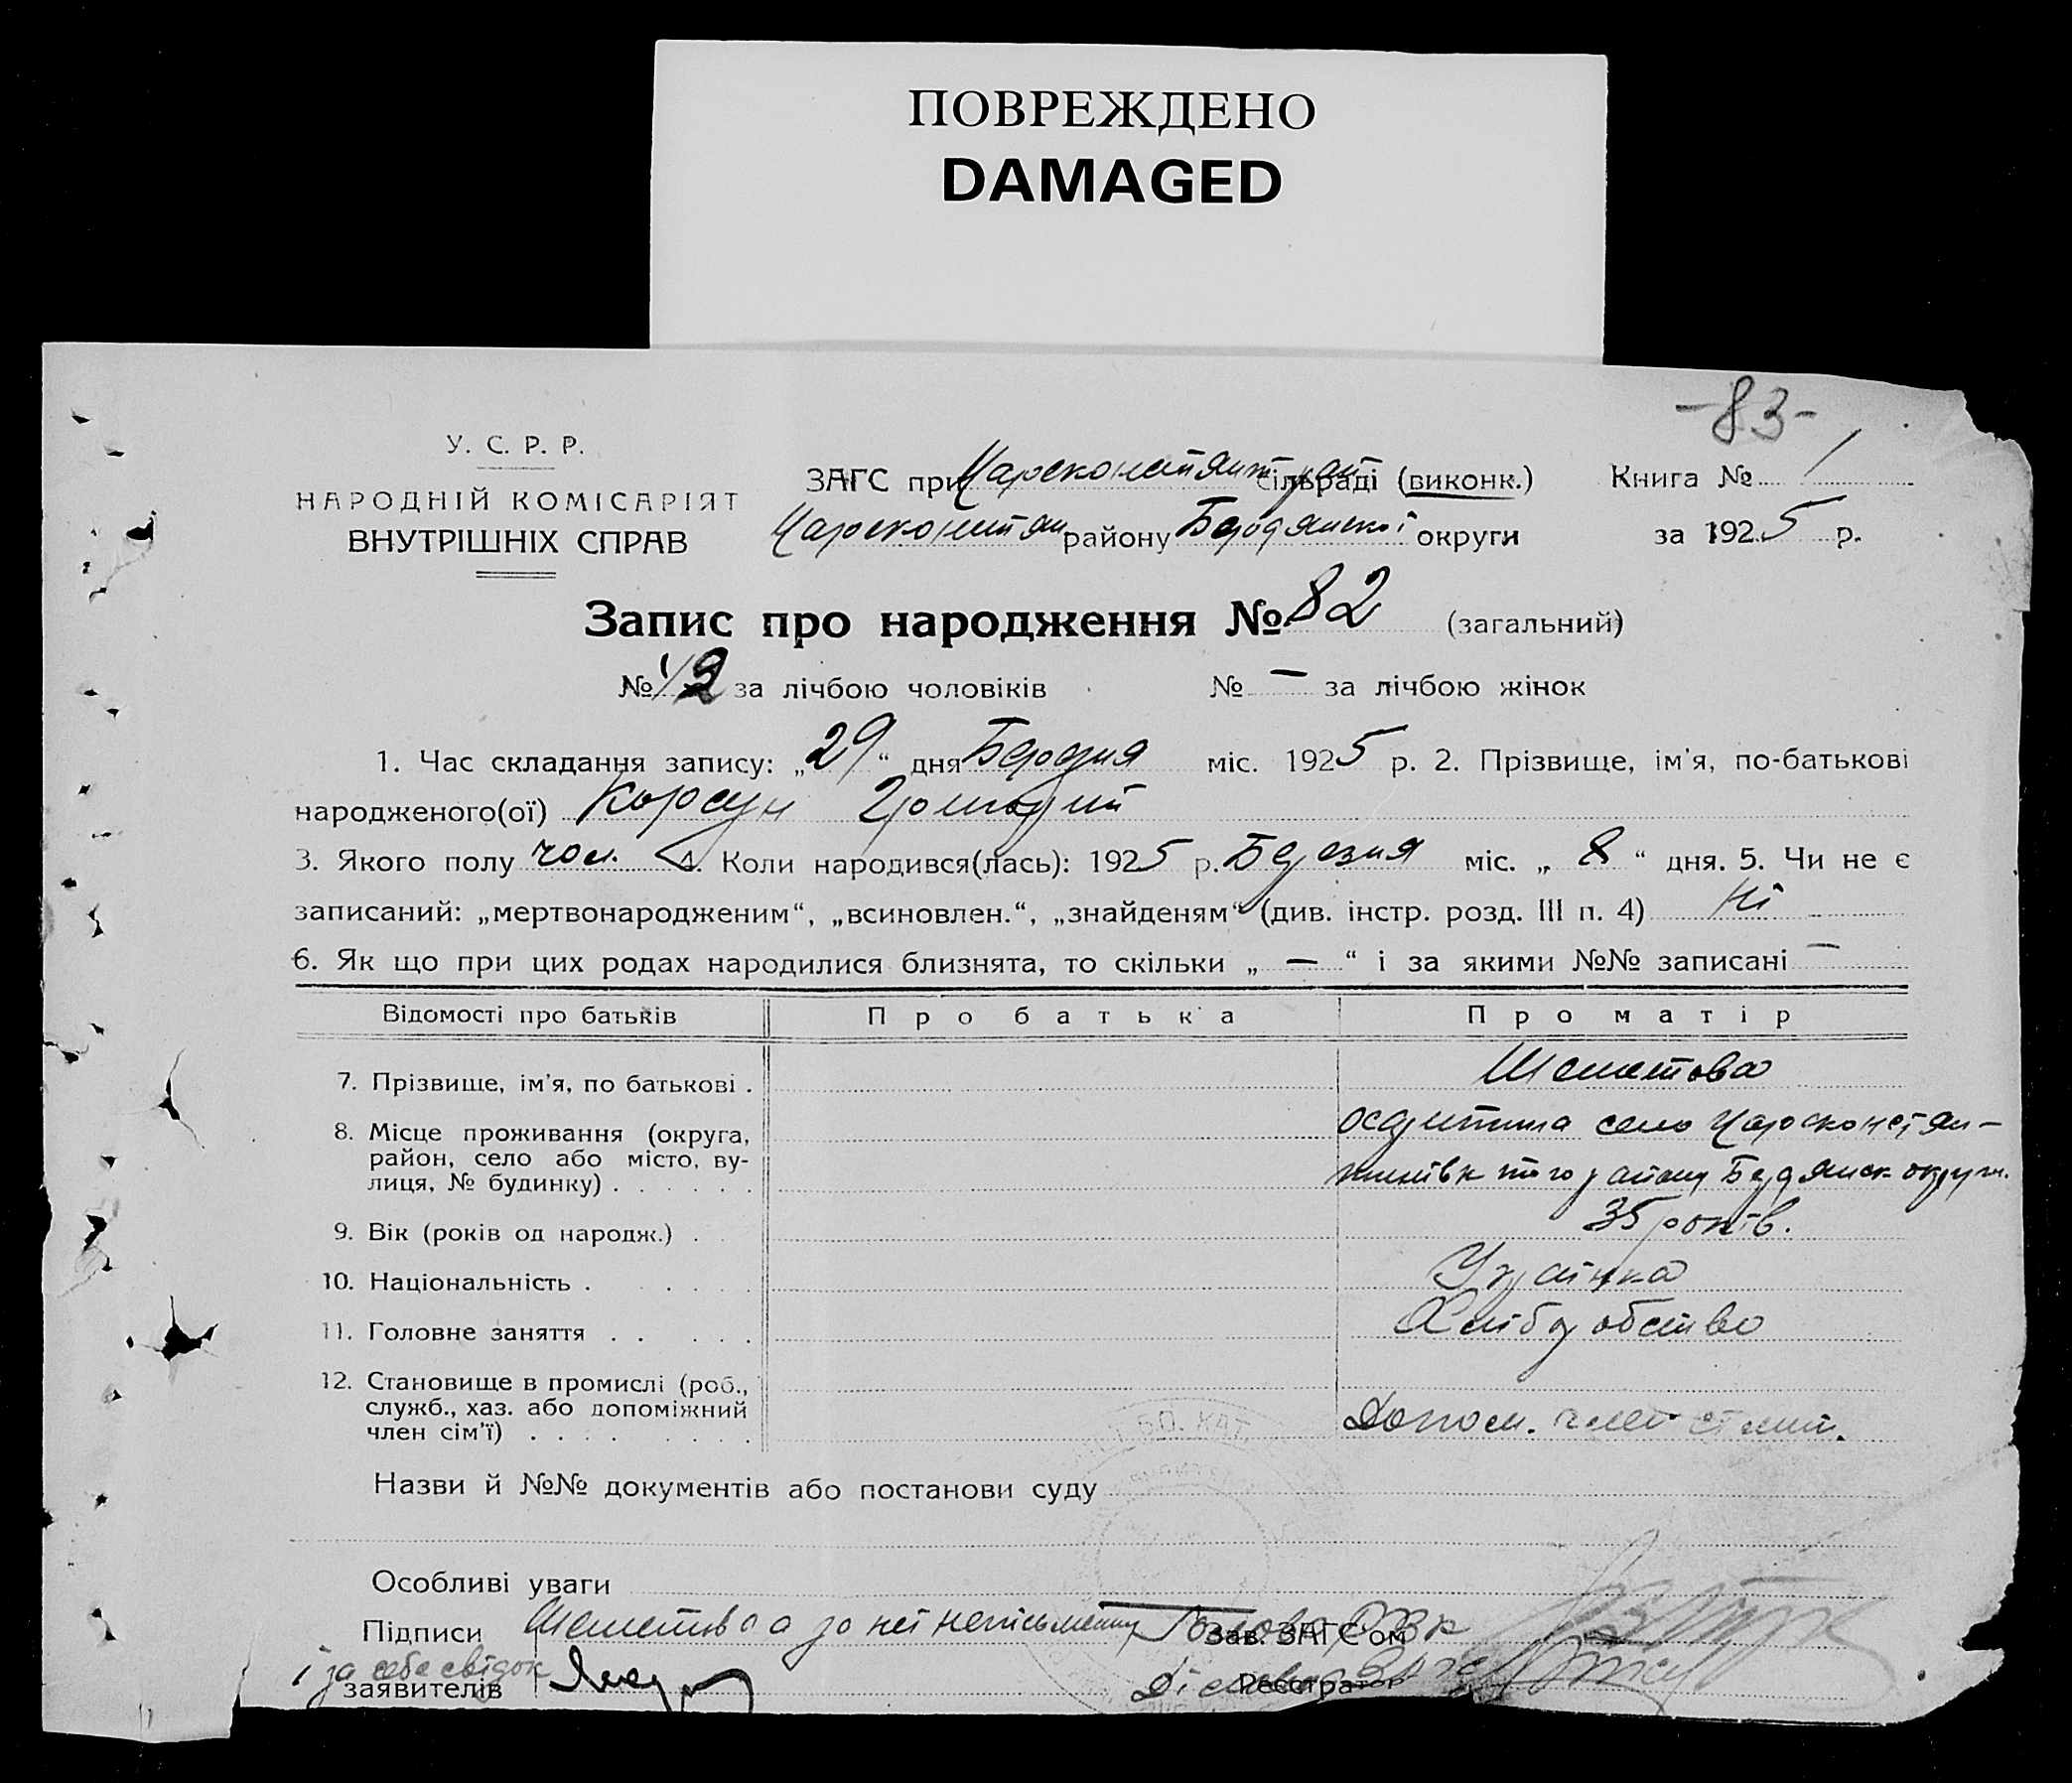 ПОВРЕЖДЕНО
DAMAGED
-83-
У. С. Р. Р.
НАРОДНІЙ КОМІСАРІЯТ
ВНУТРІШНІХ СПРАВ
ЗАГС при Царсконстянт. сільраді (виконк.)
Царсконстян району Бердянської округи
Книга № 1
за 1925 р.
Запис про народження № 82 (загальний)
№ за лічбою чоловіків № — за лічбою жінок
1. Час складання запису: „29“ дня міс. 1925 р. 2. Прізвище, ім'я, по-батькові
народженого(ої) Корсун
3. Якого полу чол. 4. Коли народився(лась): 1925 р. Березня міс. „ 8 “ дня. 5. Чи не є
записаний: „мертвонародженим“, „всиновлен.“, „знайденям“ (див. інстр. розд. III п. 4) Ні
6. Як що при цих родах народилися близнята, то скільки „ — “ і за якими №№ записані —
Відомості про батьків Про батька Про матір
7. Прізвище, ім'я, по батькові . Шеметова
8. Місце проживання (округа,
район, село або місто, ву-
лиця, № будинку) . . . . . .
село Царсконстян-
того району Бердянск округи.
9. Вік (років од народж.) . 35 років.
10. Національність . . . . . Українка
11. Головне заняття . . . . . Хліборобство
12. Становище в промислі (роб.,
служб., хаз. або допоміжний
член сім'ї) . . . . . . . .
Допом. член
Назви й №№ документів або постанови суду
Особливі уваги
Підписи Шеметова а за неї неписьменну Голова РВК
Зав. ЗАГС'ом
і за себе свідок
заявителів
Діловод
Реєстратор